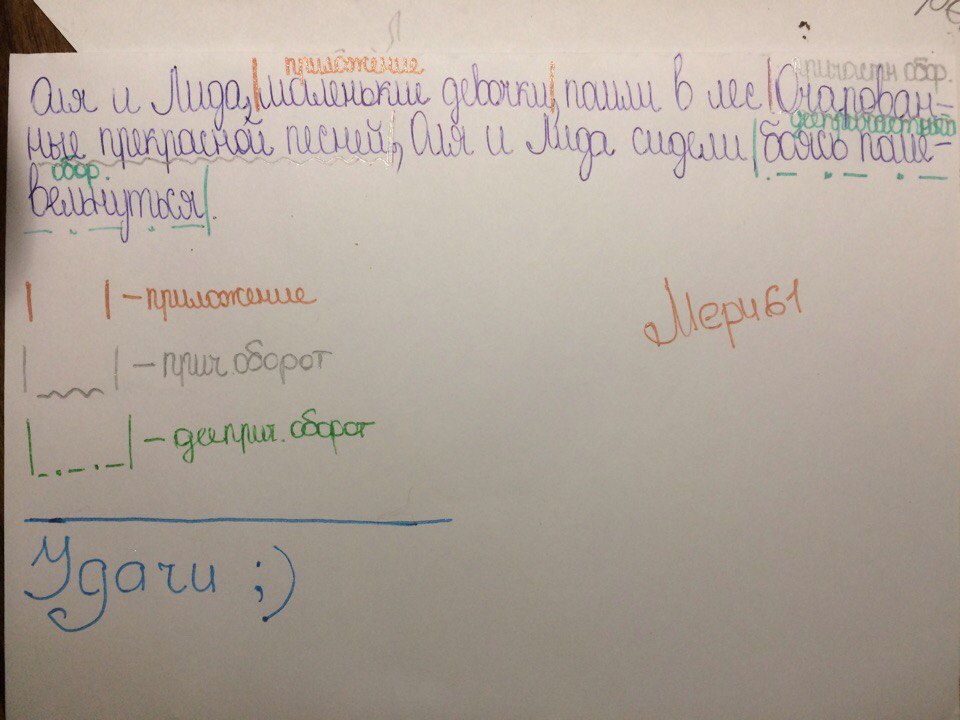 приложение
причастн обор.
Аля и Лида, маленькие девочки, пошли в лес Очарован-
деепричастный
ные прекрасной песней, Аля и Лида сидели боясь поше-
обор.
вельнуться.
– приложение
Мери61
– прич. оборот
– дееприч. оборот
Удачи ;)